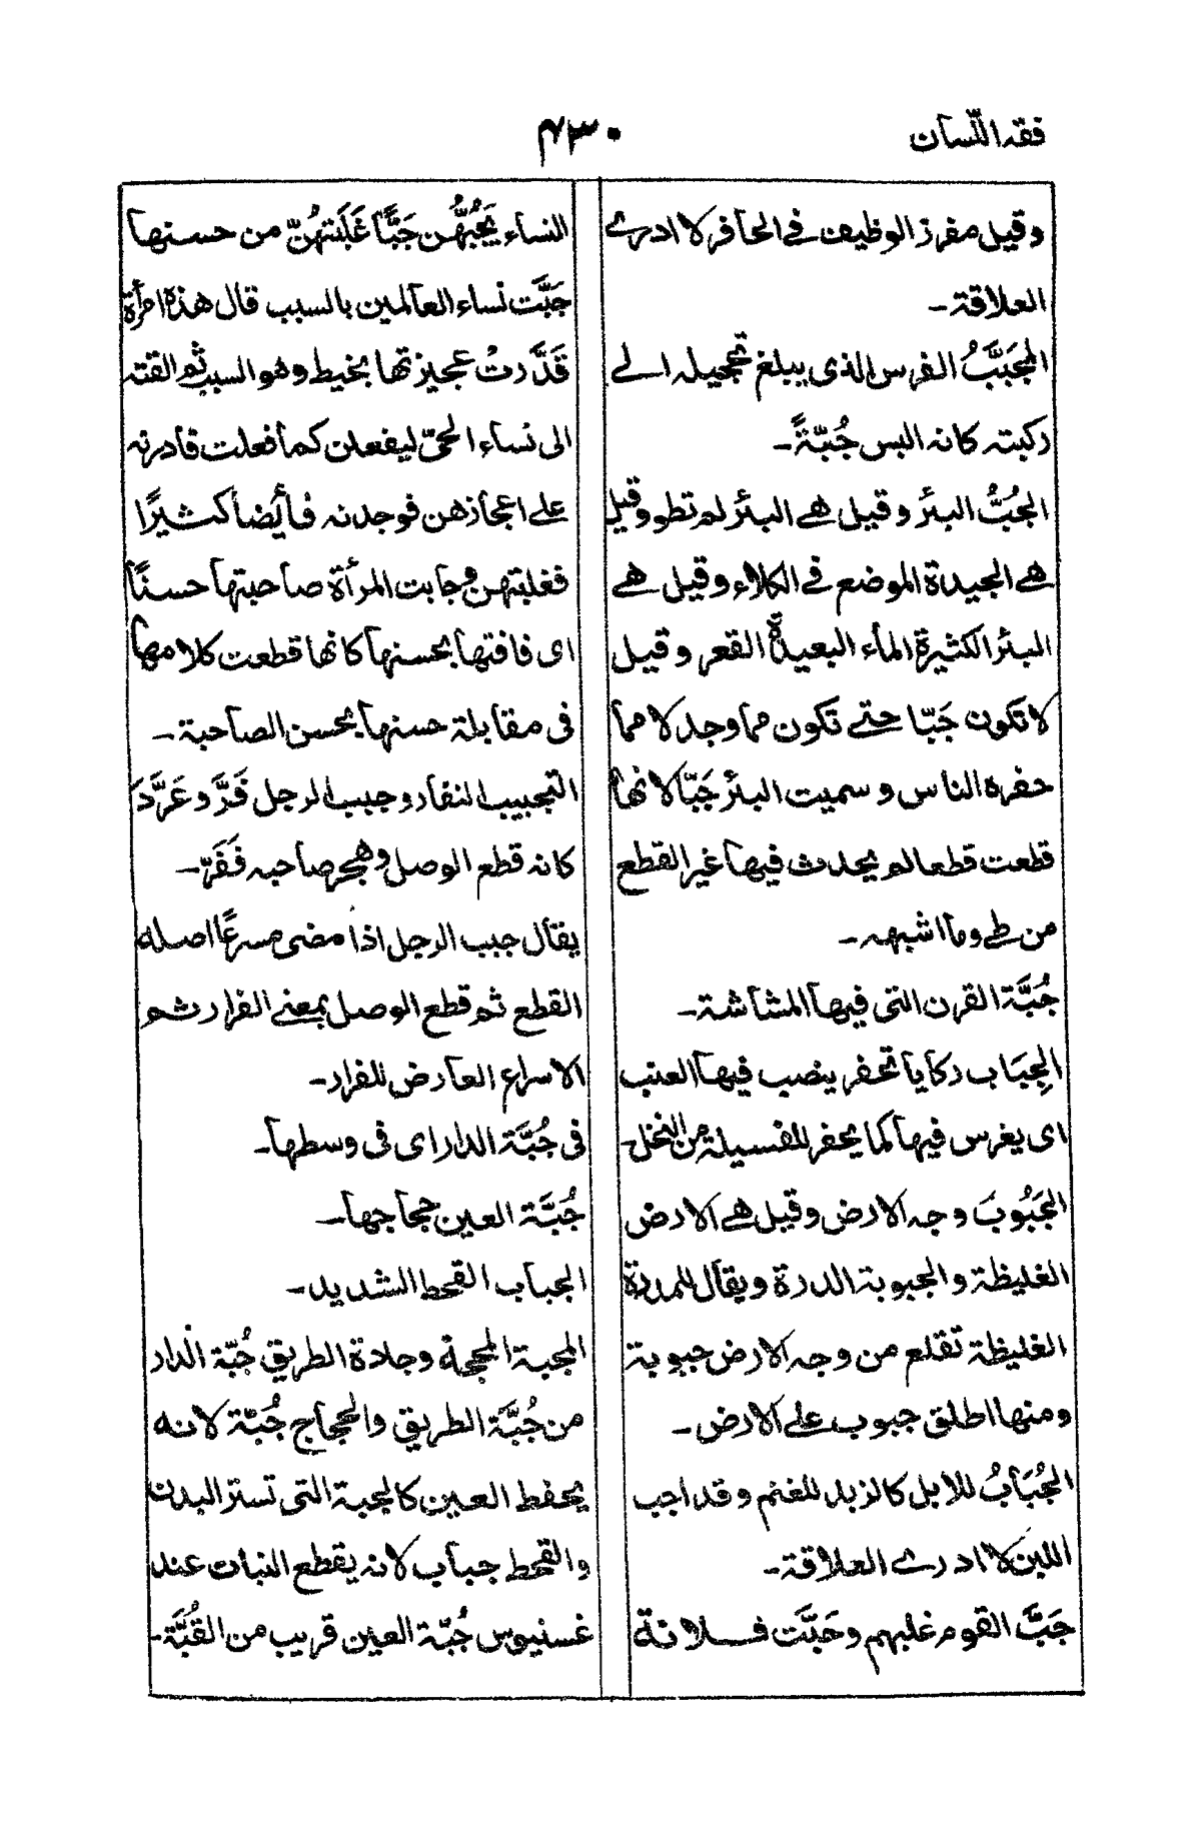 فقه اللّسان
۴۳۰
وقيل مفرز الوظيف فے الحافر لا ادرے
العلاقة۔
المُجَبَّبُ الفرس الذى يبلغ تحجيله الے
ركبته كانه البس جُبّةً۔
الجُبُّ البئر وقيل هے البئر لم تطو وقيل
هے الجيدة الموضع فے الكلاء وقيل هے
البئر الكثيرة الماء البعيدة القعر وقيل
لا تكون جَبّا حتے تكون مما وجد لا مما
حفره الناس وسميت البئر جَبّا لانها
قطعت قطعا لم يحدث فيها غير القطع
من طے وما اشبهه۔
جُبَّة القرن التى فيها المشاشة۔
الجِبَاب ركايا تحفر ينصب فيها العنب
اى يغرس فيها كما يحفر للفسيلة من النخل۔
الجَبُوبَ وجه الارض وقيل هے الارض
الغليظة والجبوبة الدرة ويقال للمدرة
الغليظة تقلع من وجه الارض جبوبة
ومنها اطلق جبوب علے الارض۔
الجُبَابُ للابل كالزبد للغنم وقد اجب
اللبن لا ادرے العلاقة۔
جَبَّ القوم غلبهم وجَبَّت فلانة
النساء يَجُبُّهُن جَبًّا غَلَبَتهُنّ من حسنها
جَبَّت نساء العالمين بالسبب قال هذه امرأة
قَدَّرتْ عجيزتها بخيط وهو السبب ثم القته
الى نساء الحىّ ليفعلن كما فعلت فادرنه
علے اعجازهن فوجدنه فأيضا كثيرًا
فغلبتهن وجابت المرأة صاحبتها حسنًا
اى فاقتها بحسنها كانها قطعت كلامها
فى مقابلة حسنها بحسن الصاحبة۔
التجبيب النفار وجبب الرجل فَرَّ وعَرَّدَ
كانه قطع الوصل وهجر صاحبه فَفَرّ۔
يقال جبب الرجل اذا مضى مسرعًا اصله
القطع ثم قطع الوصل بمعنے الفرار ثم
الاسراع العارض للفرار۔
فى جُبَّة الدار اى فى وسطها۔
جُبَّة العين حجاجها۔
الجباب القحط الشديد۔
المجبة المحجة وجادة الطريق جُبّة الدار
من جُبَّة الطريق والحجاج جُبّة لانه
يحفط العين كالجبة التى تستر البدن
والقحط جباب لانه يقطع النبات عند
غسنيوس جُبّة العين قريب من القُبَّة۔